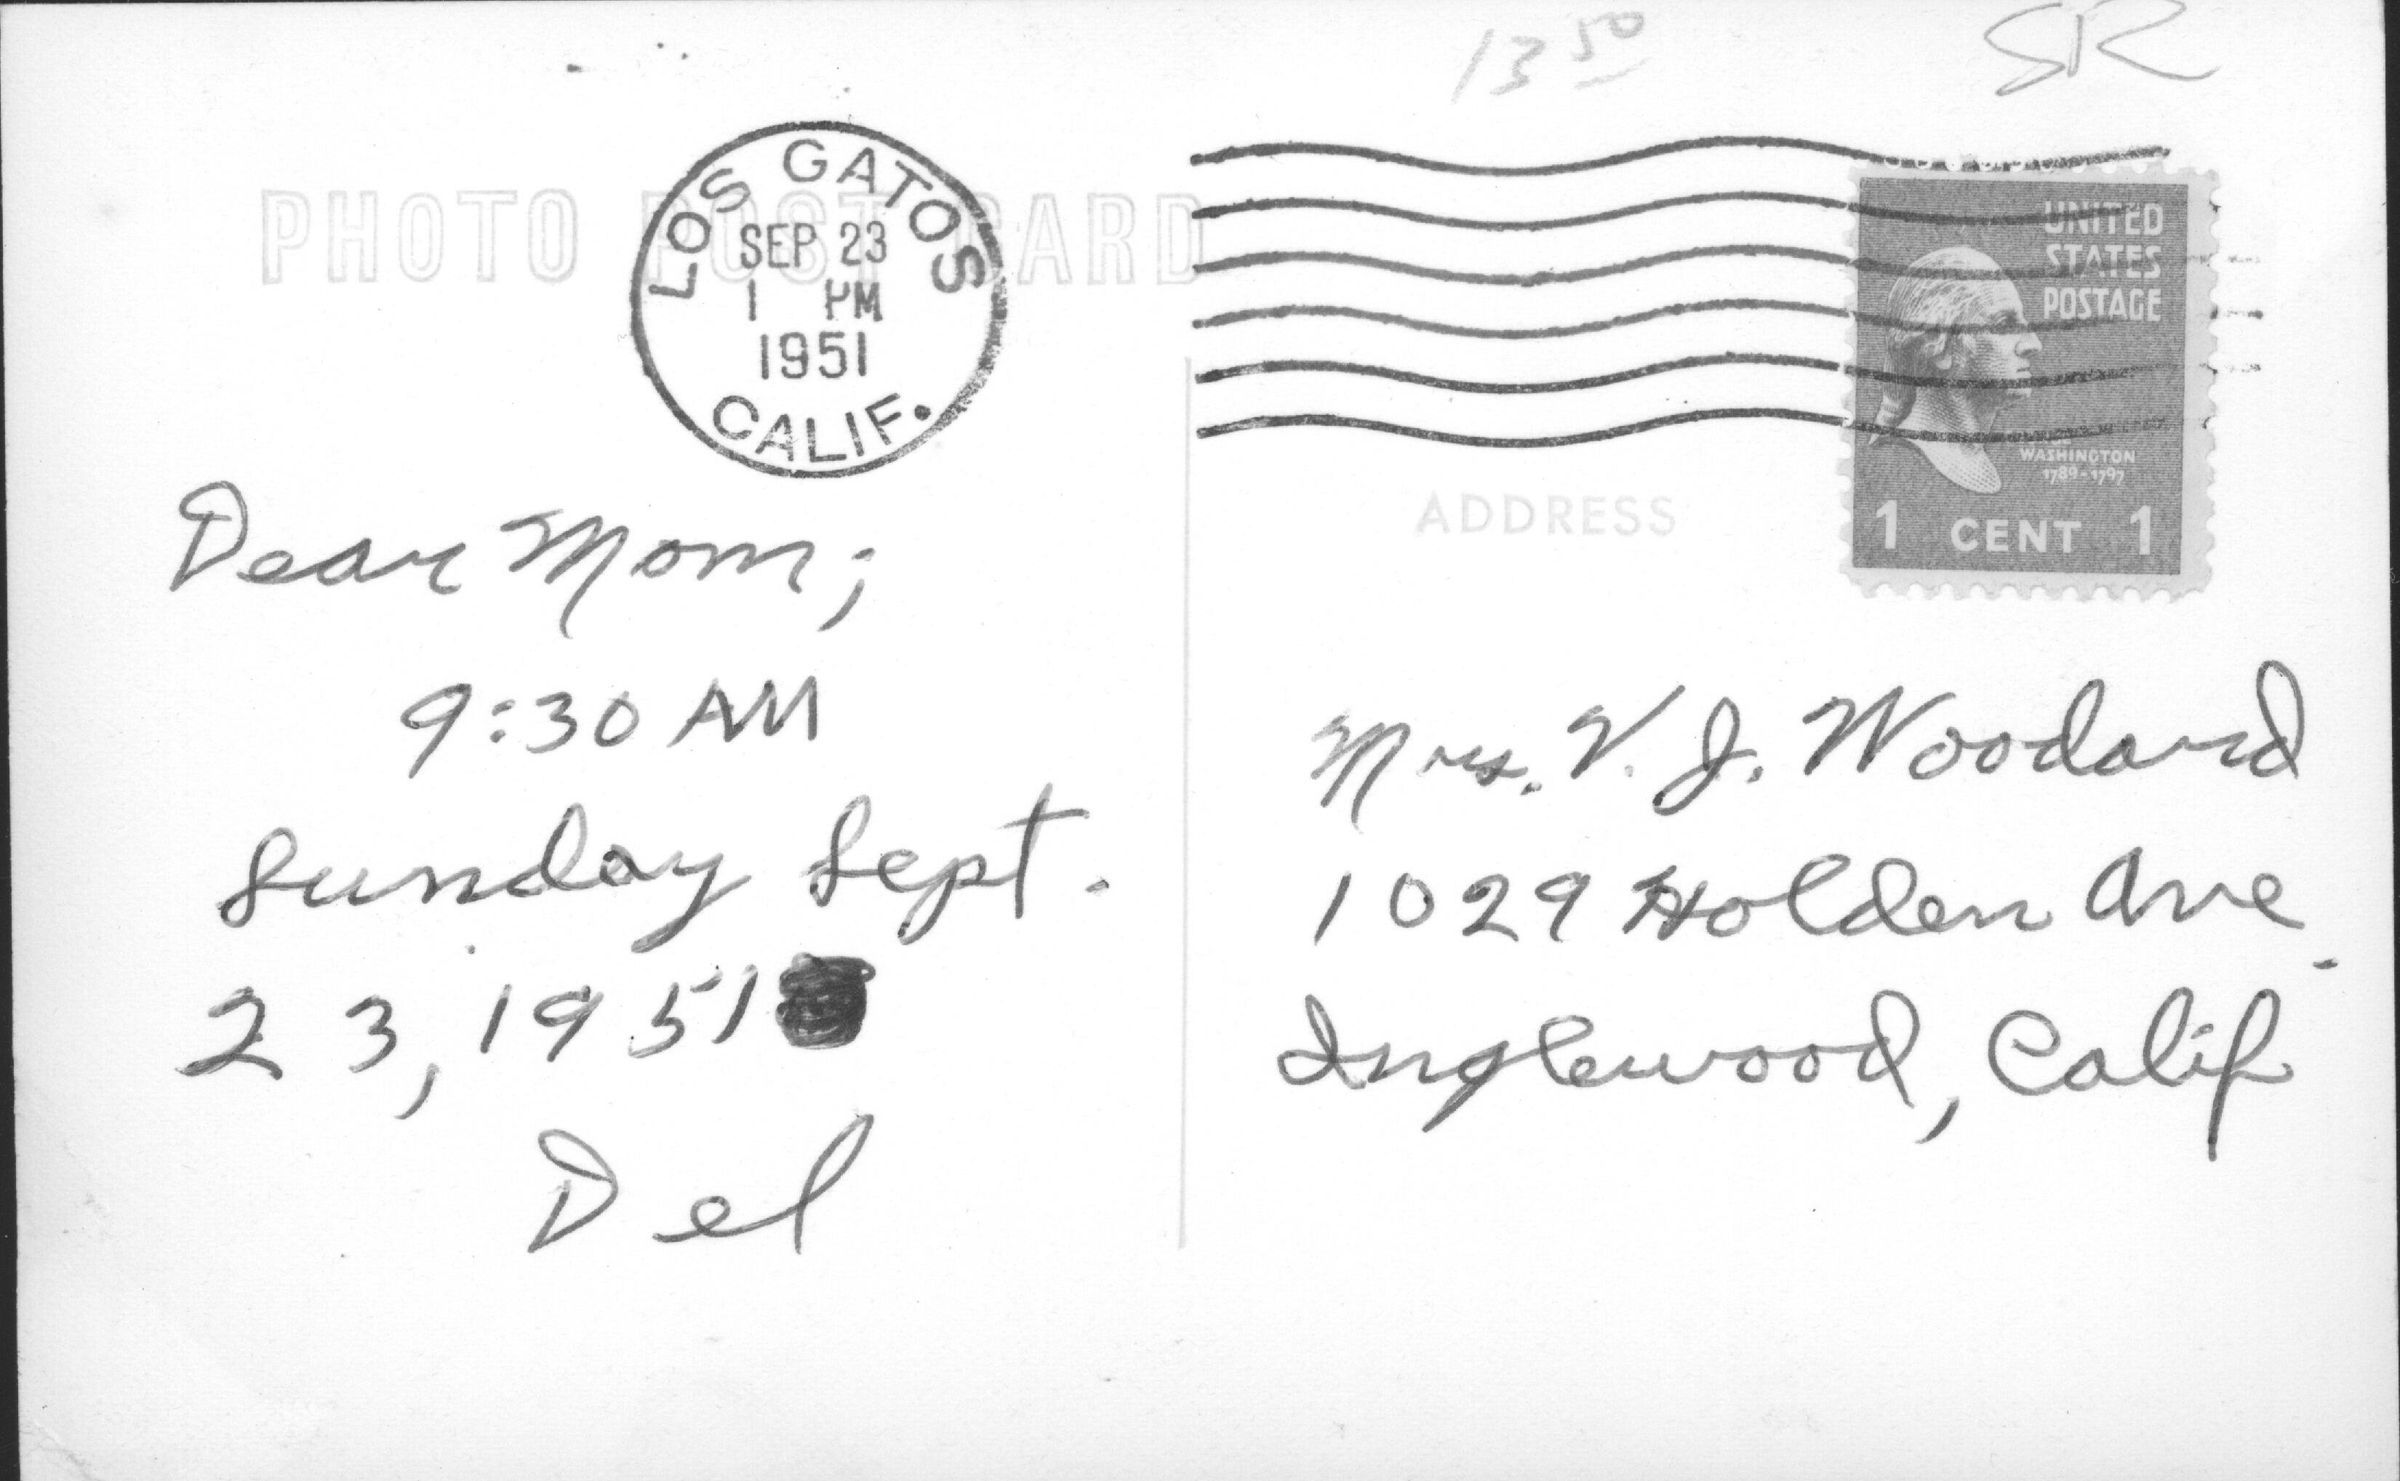 13 50
SR
PHOTO POST CARD
LOS GATOS
SEP 23
1 PM
1951
CALIF.
UNITED
STATES
POSTAGE
WASHINGTON
1789-1797
1 CENT 1
ADDRESS
Dear Mom;
9:30 AM
Sunday Sept.
23, 1951
Del
Mrs. V. J. Woodard
1029 Holden Ave.
Inglewood, Calif